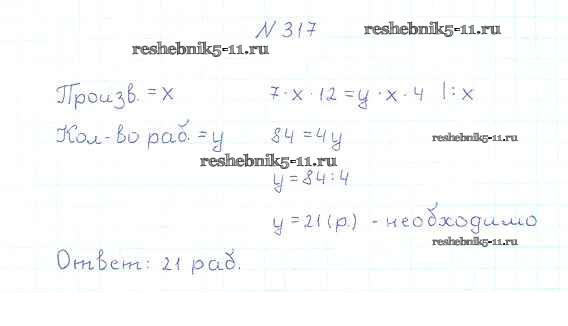 N 317
reshebnik5-11.ru
reshebnik5-11.ru
Произв. = x
7 · x · 12 = y · x · 4 |: x
Кол-во раб. = y
84 = 4y
reshebnik5-11.ru
reshebnik5-11.ru
y = 84 : 4
y = 21 (р.) - необходимо
reshebnik5-11.ru
Ответ: 21 раб.